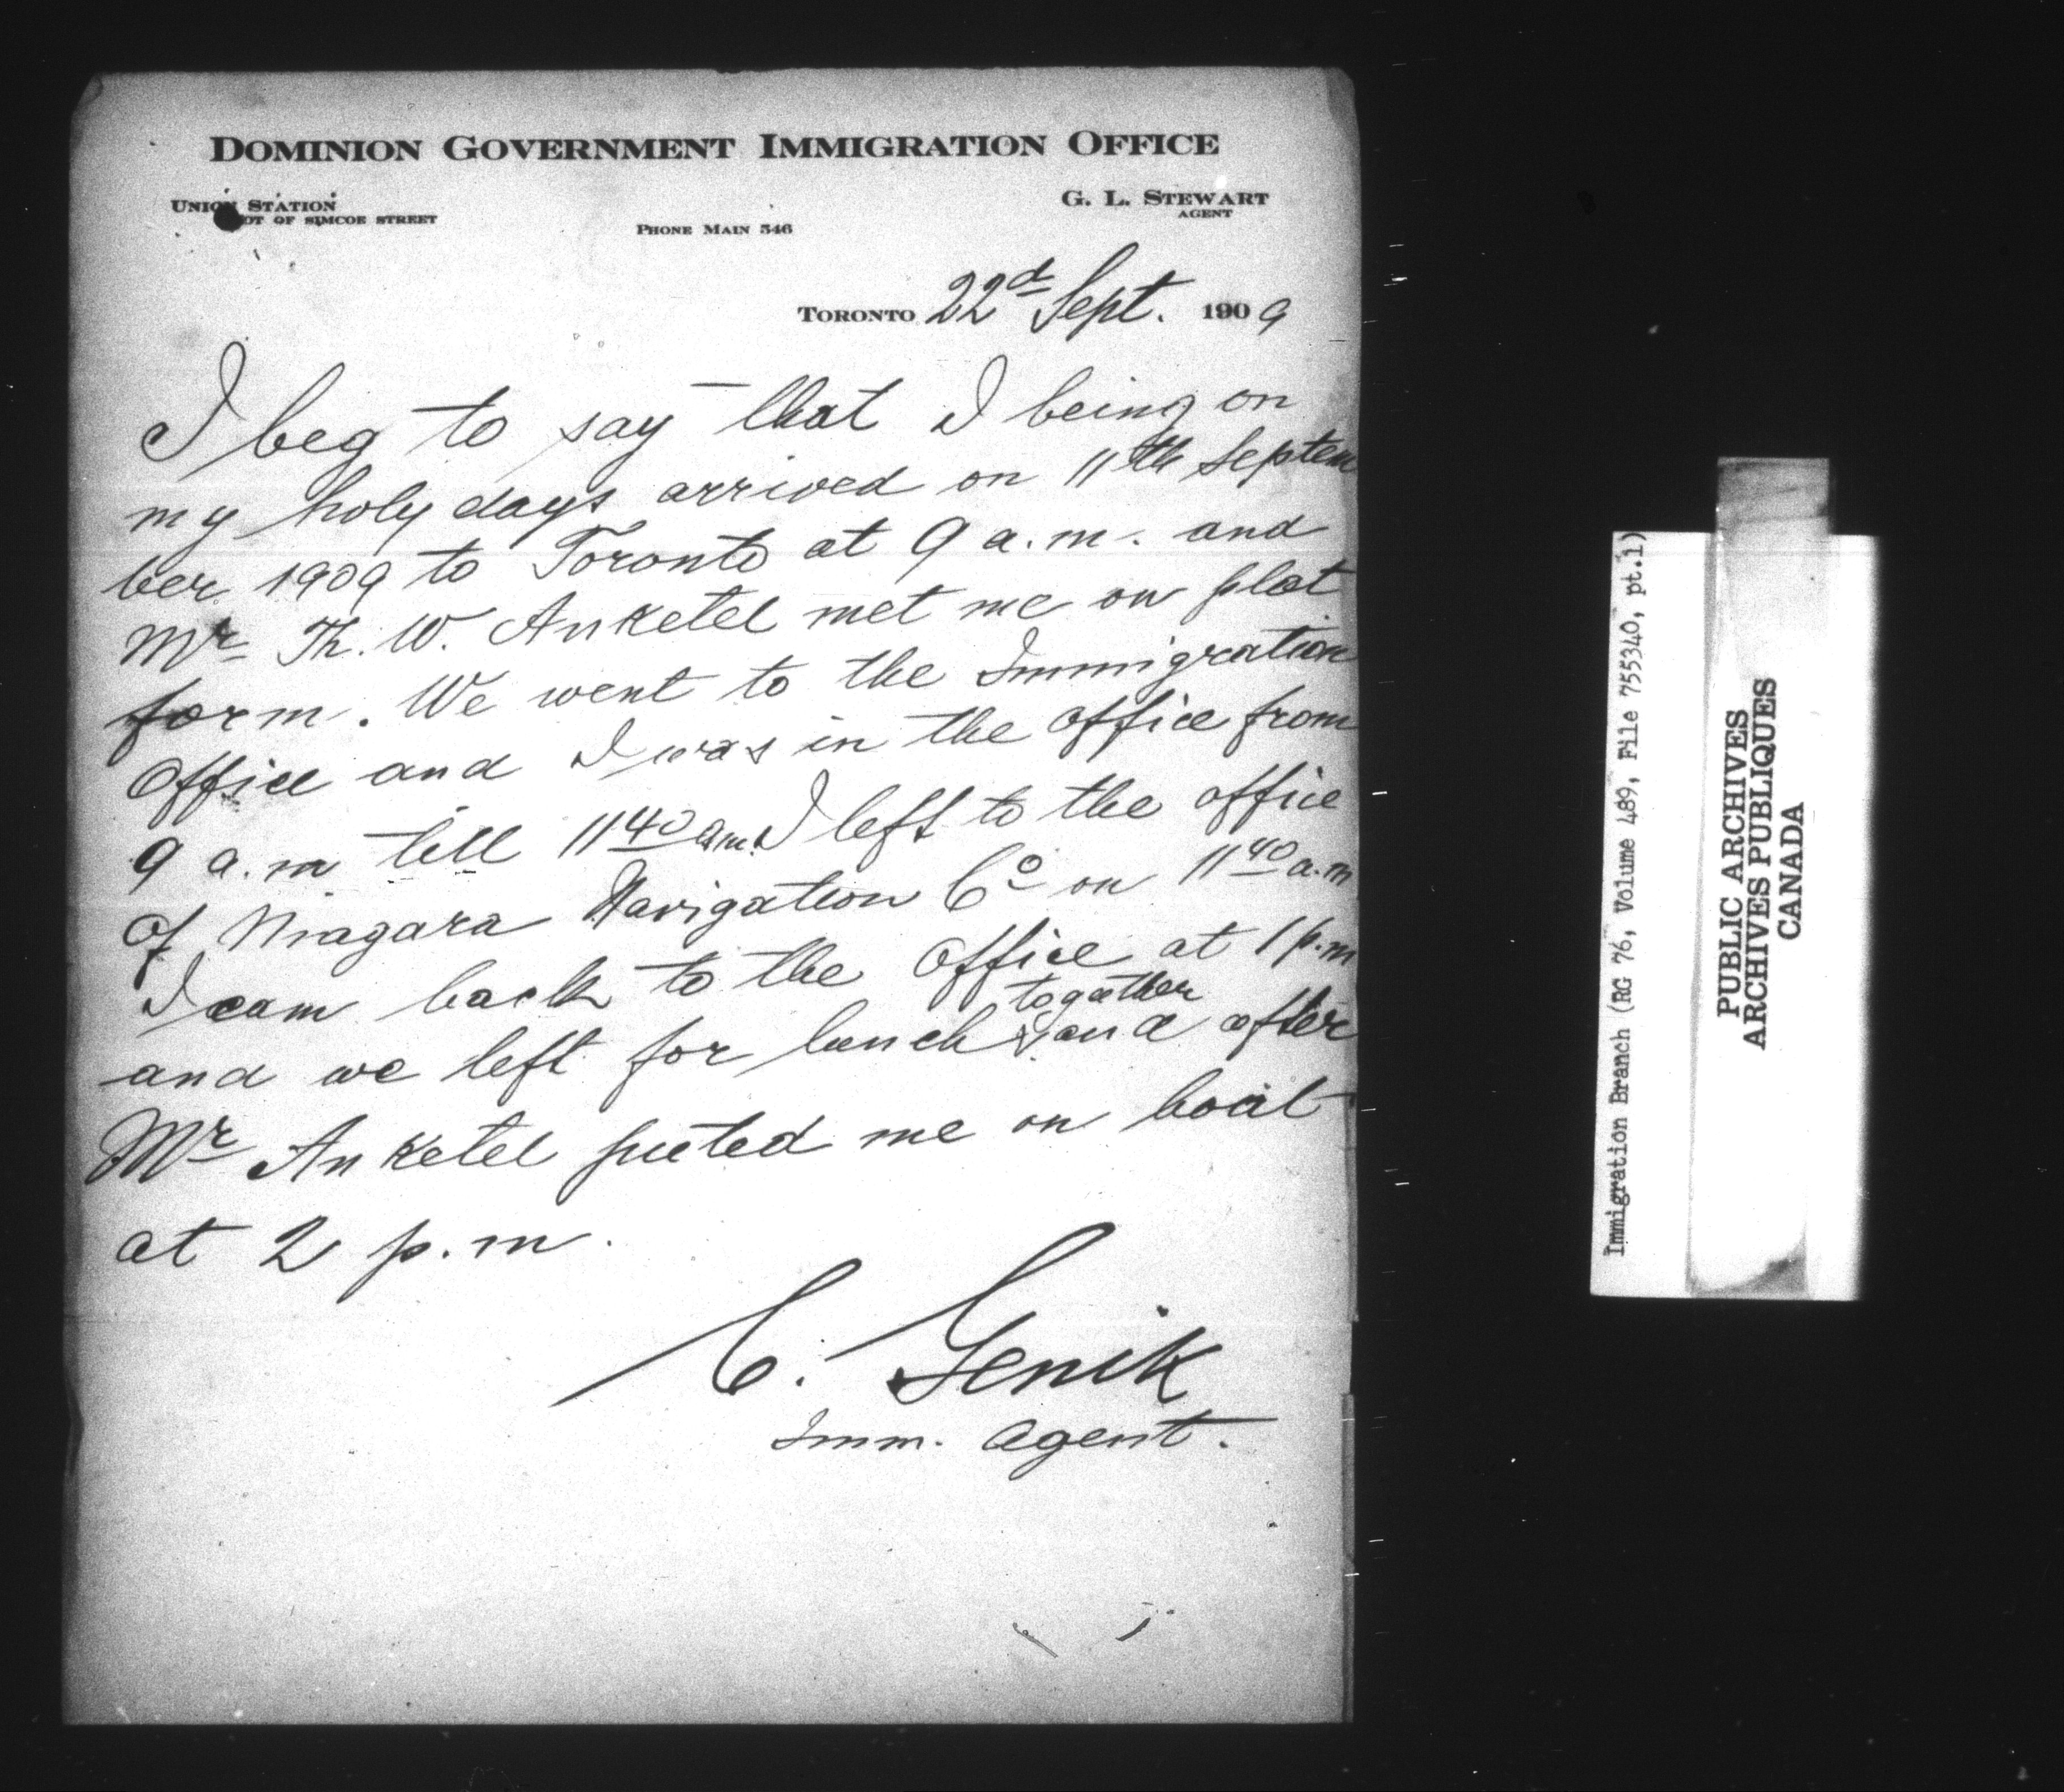 DOMINION GOVERNMENT IMMIGRATION OFFICE
UNION STATION
OF SIMCOE STREET
PHONE MAIN 546
G. L. STEWART
AGENT
TORONTO 22d Sept. 1909
I beg to say that I being on
my holy days arrived on 11th Septem
ber 1909 to Toronto at 9 a.m. and
Mr Th. W. Anketel met me on plat
form. We went to the Immigration
Office and I was in the office from
9 a.m till 11 40 a.m. I left to the office
of Niagara Navigation Co on 11 40 a.m
I cam back to the Office at 1 p.m
and we left for lunch together and after
Mr Anketel puted me on boat
at 2 p.m.
C. Genik
Imm. Agent.
Immigration Branch (RG 76, Volume 489, File 755340, pt.1)
PUBLIC ARCHIVES
ARCHIVES PUBLIQUES
CANADA